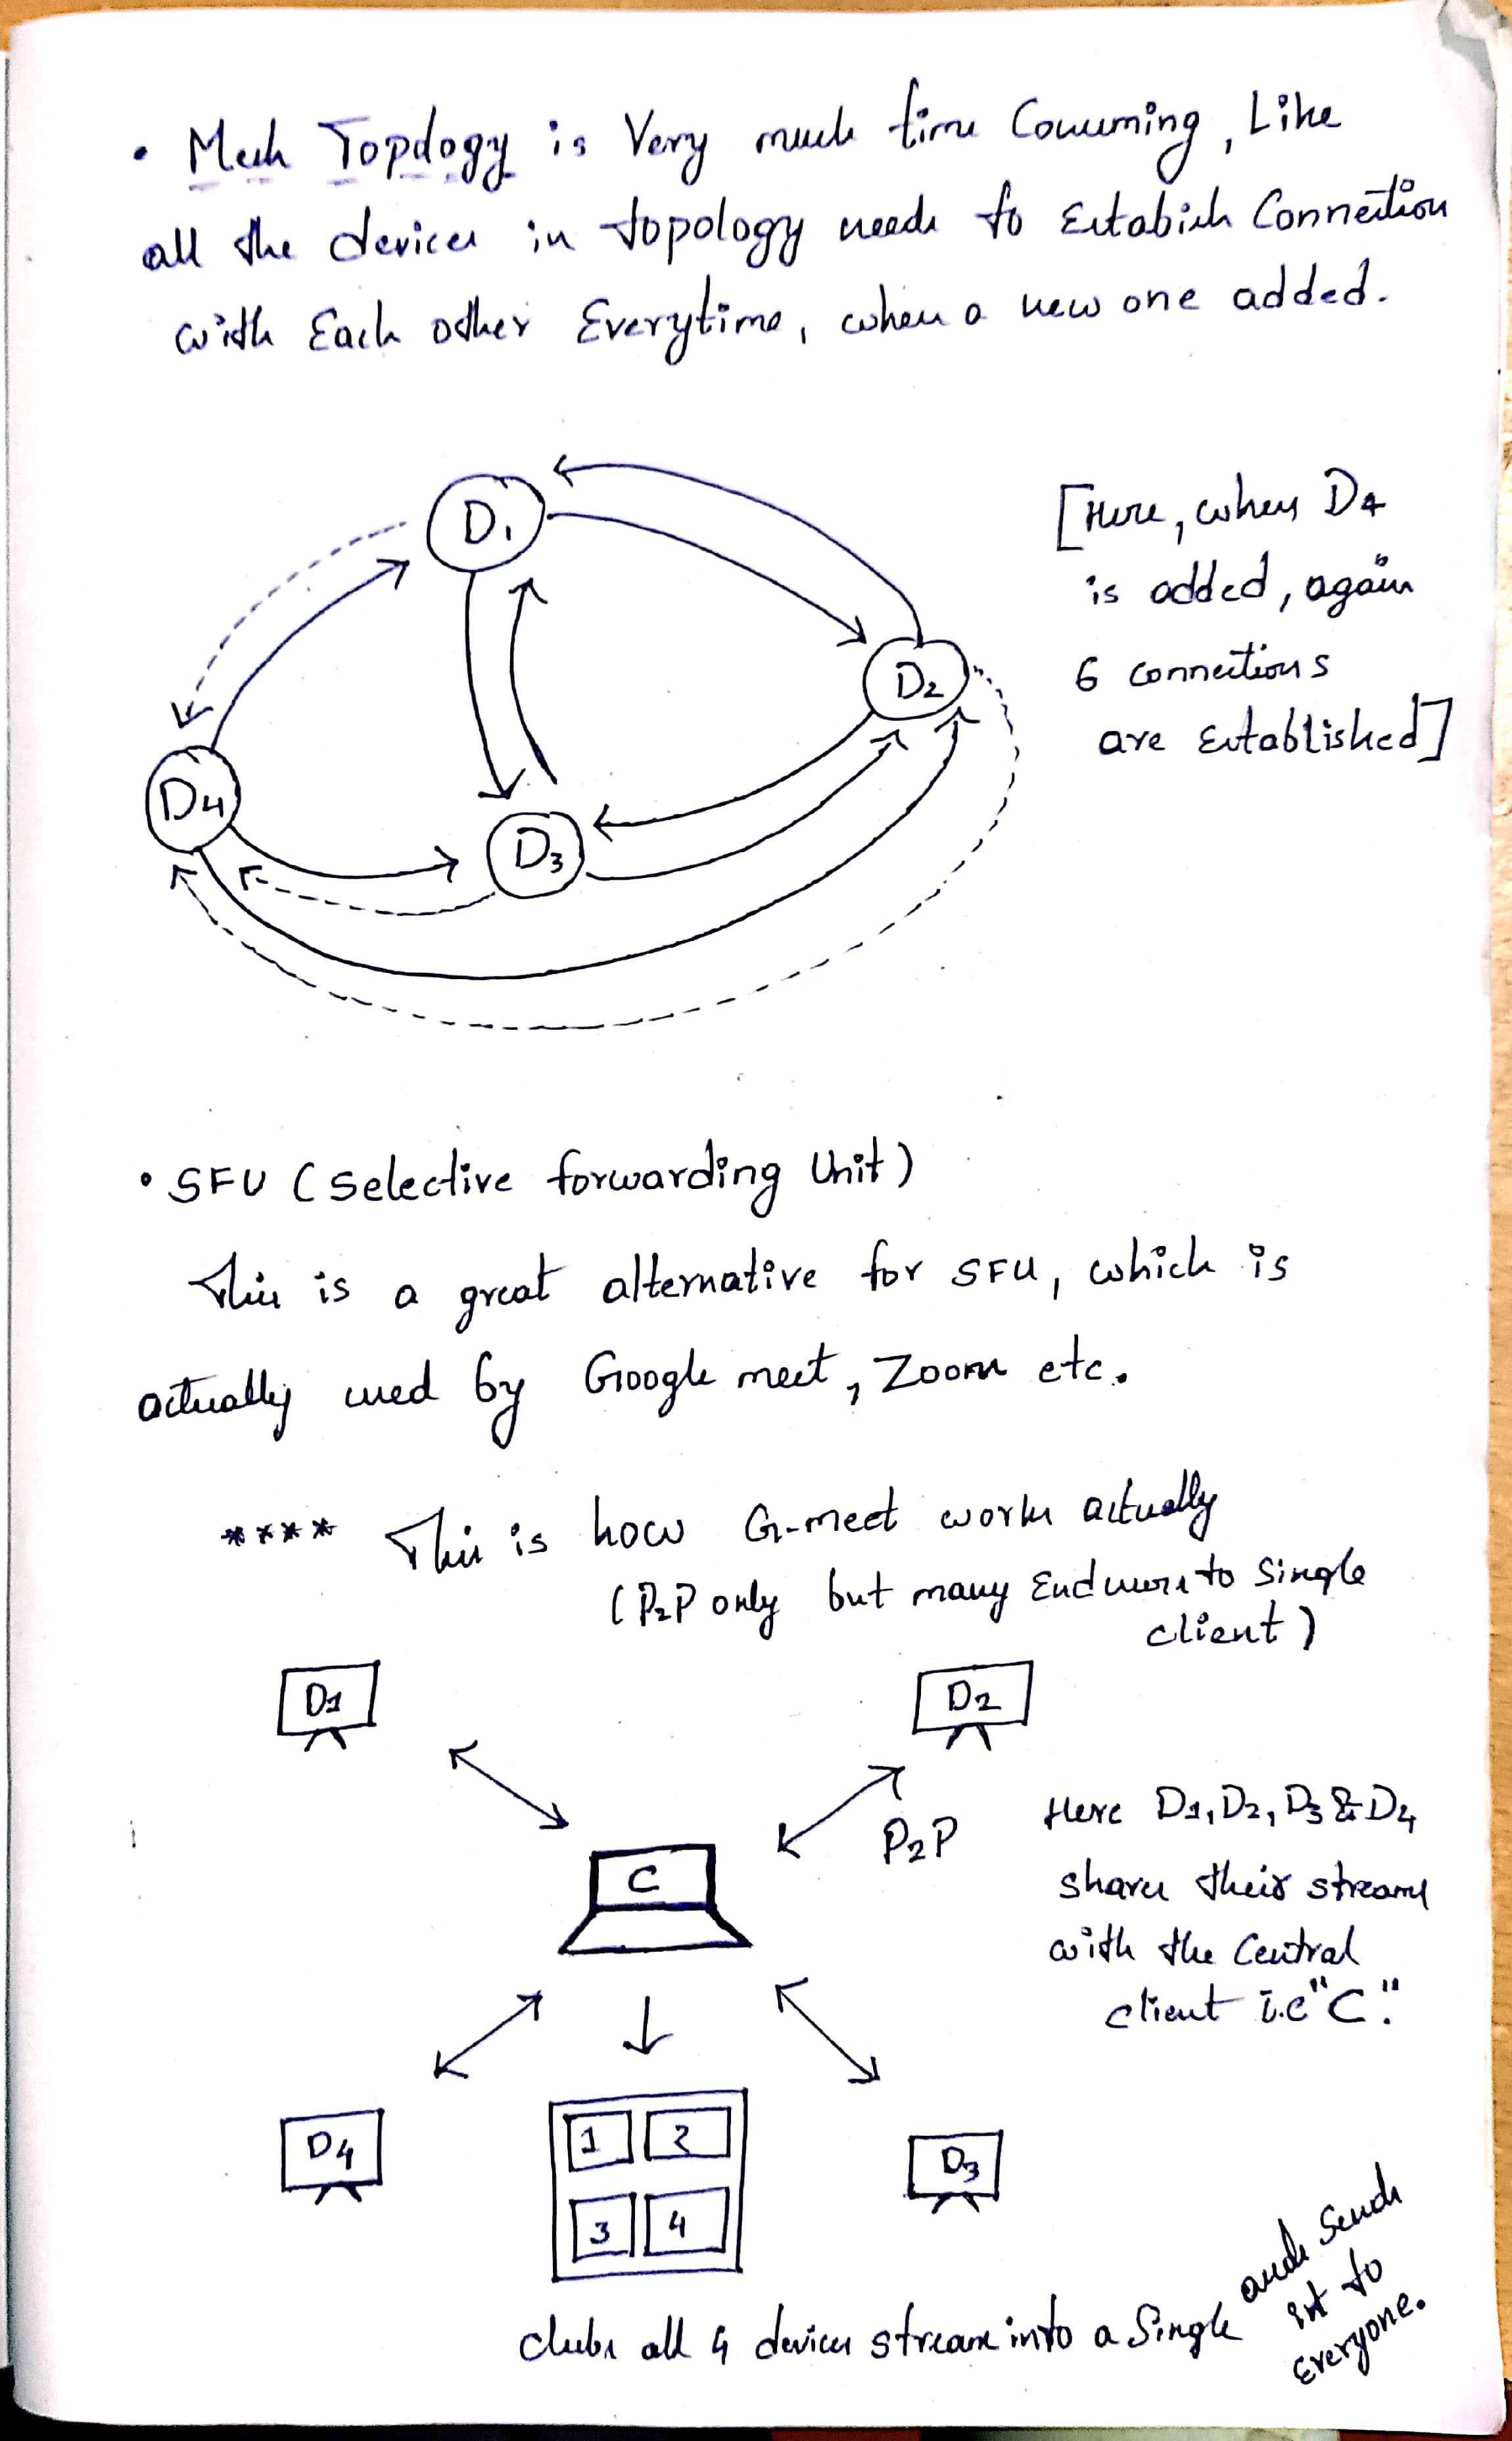 • Mesh Topology is Very much time Consuming, Like
all the devices in topology needs to Establish Connection
with Each other Everytime, when a new one added.
[Here, when D4
is added, again
6 connections
are Established]
D1
D2
D4
D3
• SFU (Selective forwarding Unit)
This is a great alternative for SFU, which is
actually used by Google meet, Zoom etc.
**** This is how G-meet works actually
(P2P only but many Endusers to Single
client)
D1
D2
P2P
C
Here D1, D2, D3 & D4
shares their streams
with the Central
client i.e "C".
D4
1 2
3 4
D3
clubs all 4 devices stream into a Single and Sends
it to
Everyone.